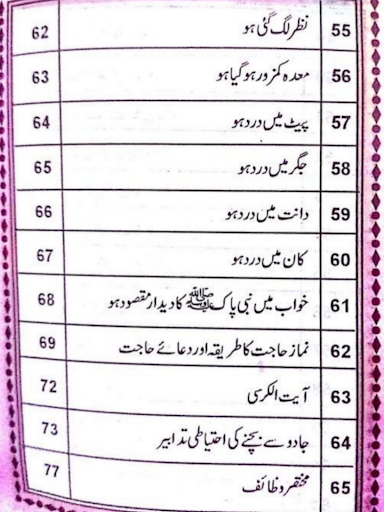 55 نظر لگ گئی ہو 62
56 معدہ کمزور ہو گیا ہو 63
57 پیٹ میں درد ہو 64
58 جگر میں درد ہو 65
59 دانت میں درد ہو 66
60 کان میں درد ہو 67
61 خواب میں نبی پاک ﷺ کا دیدار مقصود ہو 68
62 نماز حاجت کا طریقہ اور دعائے حاجت 69
63 آیت الکرسی 72
64 جادو سے بچنے کی احتیاطی تدابیر 73
65 مختصر وظائف 77